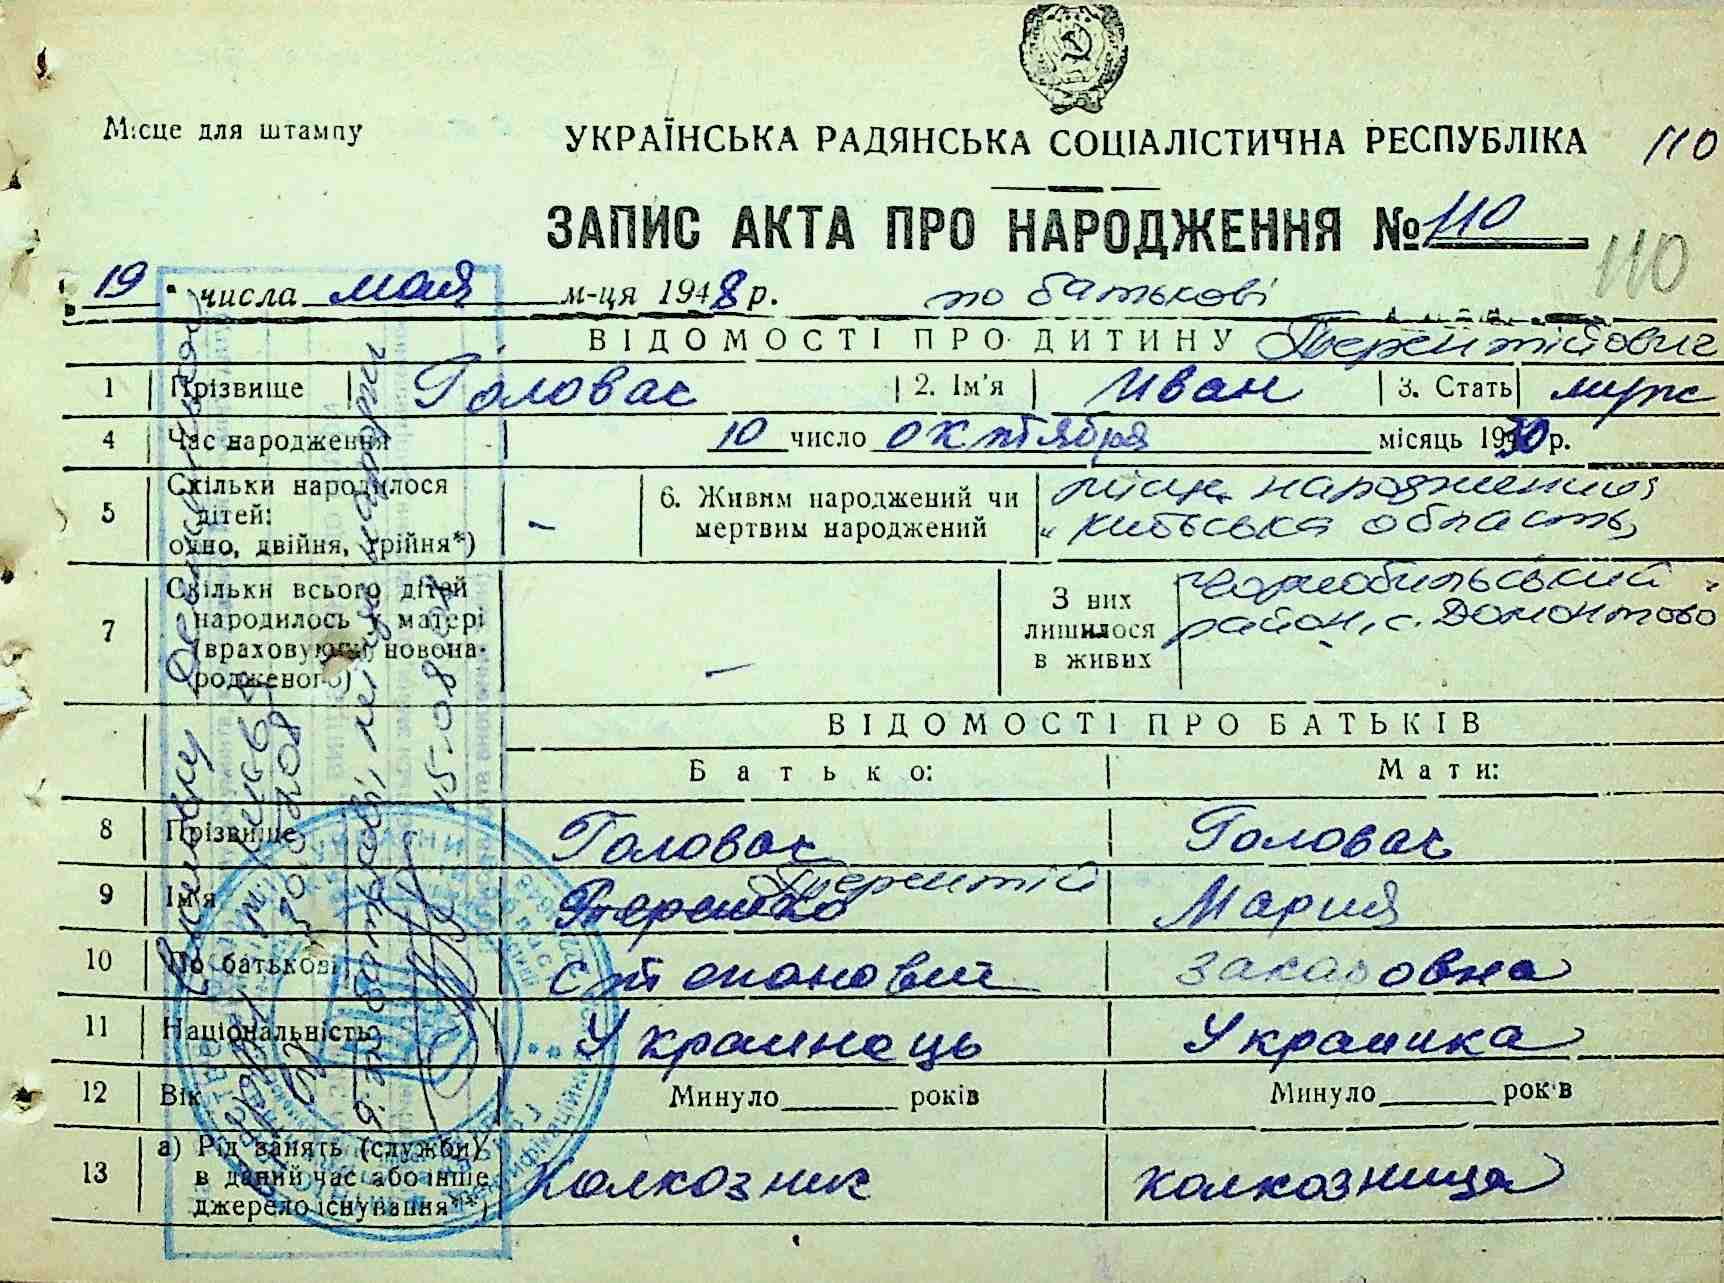 Місце для штампу
УКРАЇНСЬКА РАДЯНСЬКА СОЦІАЛІСТИЧНА РЕСПУБЛІКА 110
ЗАПИС АКТА ПРО НАРОДЖЕННЯ № 110
110
19 числа мая м-ця 1948 р. по батькові
ВІДОМОСТІ ПРО ДИТИНУ Терентійович
1 Прізвище Головас 2. Ім'я Иван 3. Стать муж
4 Час народження 10 число октября місяць 1930 р.
5 Скільки народилося дітей: одно, двійня, трійня*) – 6. Живим народжений чи мертвим народжений
місце народження
Київська область,
7 Скільки всього дітей народилось у матері (враховуючи новонародженого) – З них лишилося в живих
Чорнобильський
район, с. Домонтово
ВІДОМОСТІ ПРО БАТЬКІВ
Батько: Мати:
8 Прізвище Головас Головас
9 Ім'я Терентій Мария
10 По батькові Степанович Закаровна
11 Національність Украинець Украинка
12 Вік Минуло років Минуло рок в
13 а) Рід занять (служби) в даний час або інше джерело існування**) Колхозник колхозница